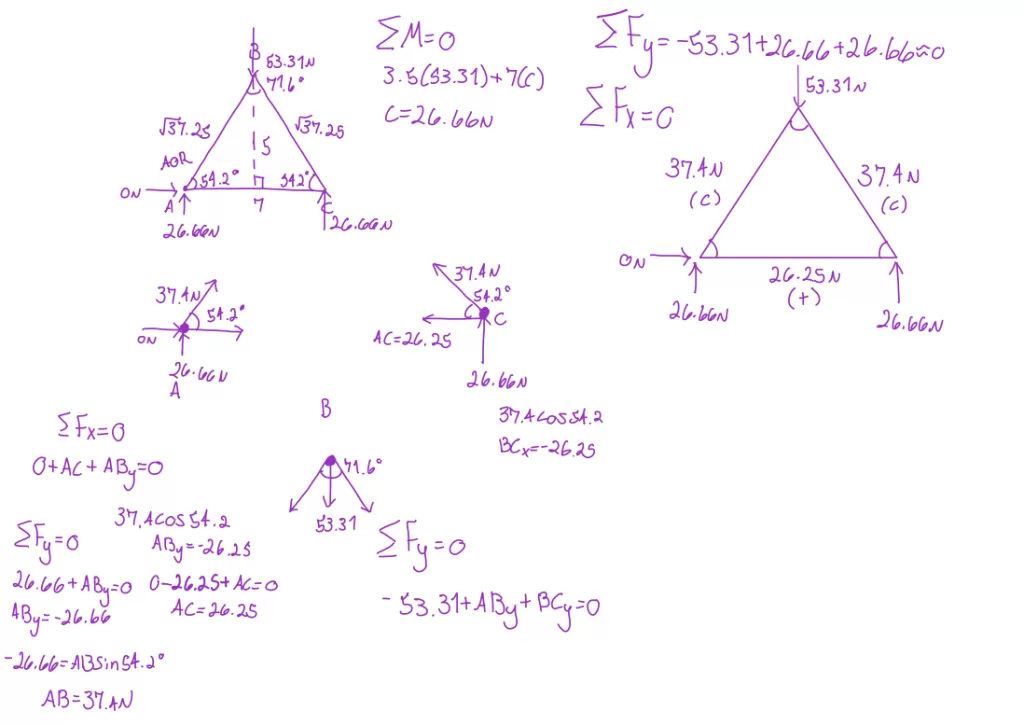 B
53.31N
71.6°
√37.25
√37.25
5
AOR
54.2°
54.2°
0N
A
7
C
26.66N
26.66N
ΣM=0
3.5(53.31)+7(C)
C=26.66N
ΣFy=-53.31+26.66+26.66≈0
ΣFx=0
53.31N
37.4N
(C)
37.4N
(C)
0N
26.25N
(+)
26.66N
26.66N
37.4N
54.2°
0N
26.66N
A
37.4N
54.2°
C
AC=26.25
26.66N
37.4cos54.2
BCx=-26.25
B
71.6°
53.31
ΣFx=0
0+AC+ABy=0
37.4cos54.2
ABy=-26.25
0-26.25+AC=0
AC=26.25
ΣFy=0
26.66+ABy=0
ABy=-26.66
-26.66=ABsin54.2°
AB=37.4N
ΣFy=0
-53.31+ABy+BCy=0